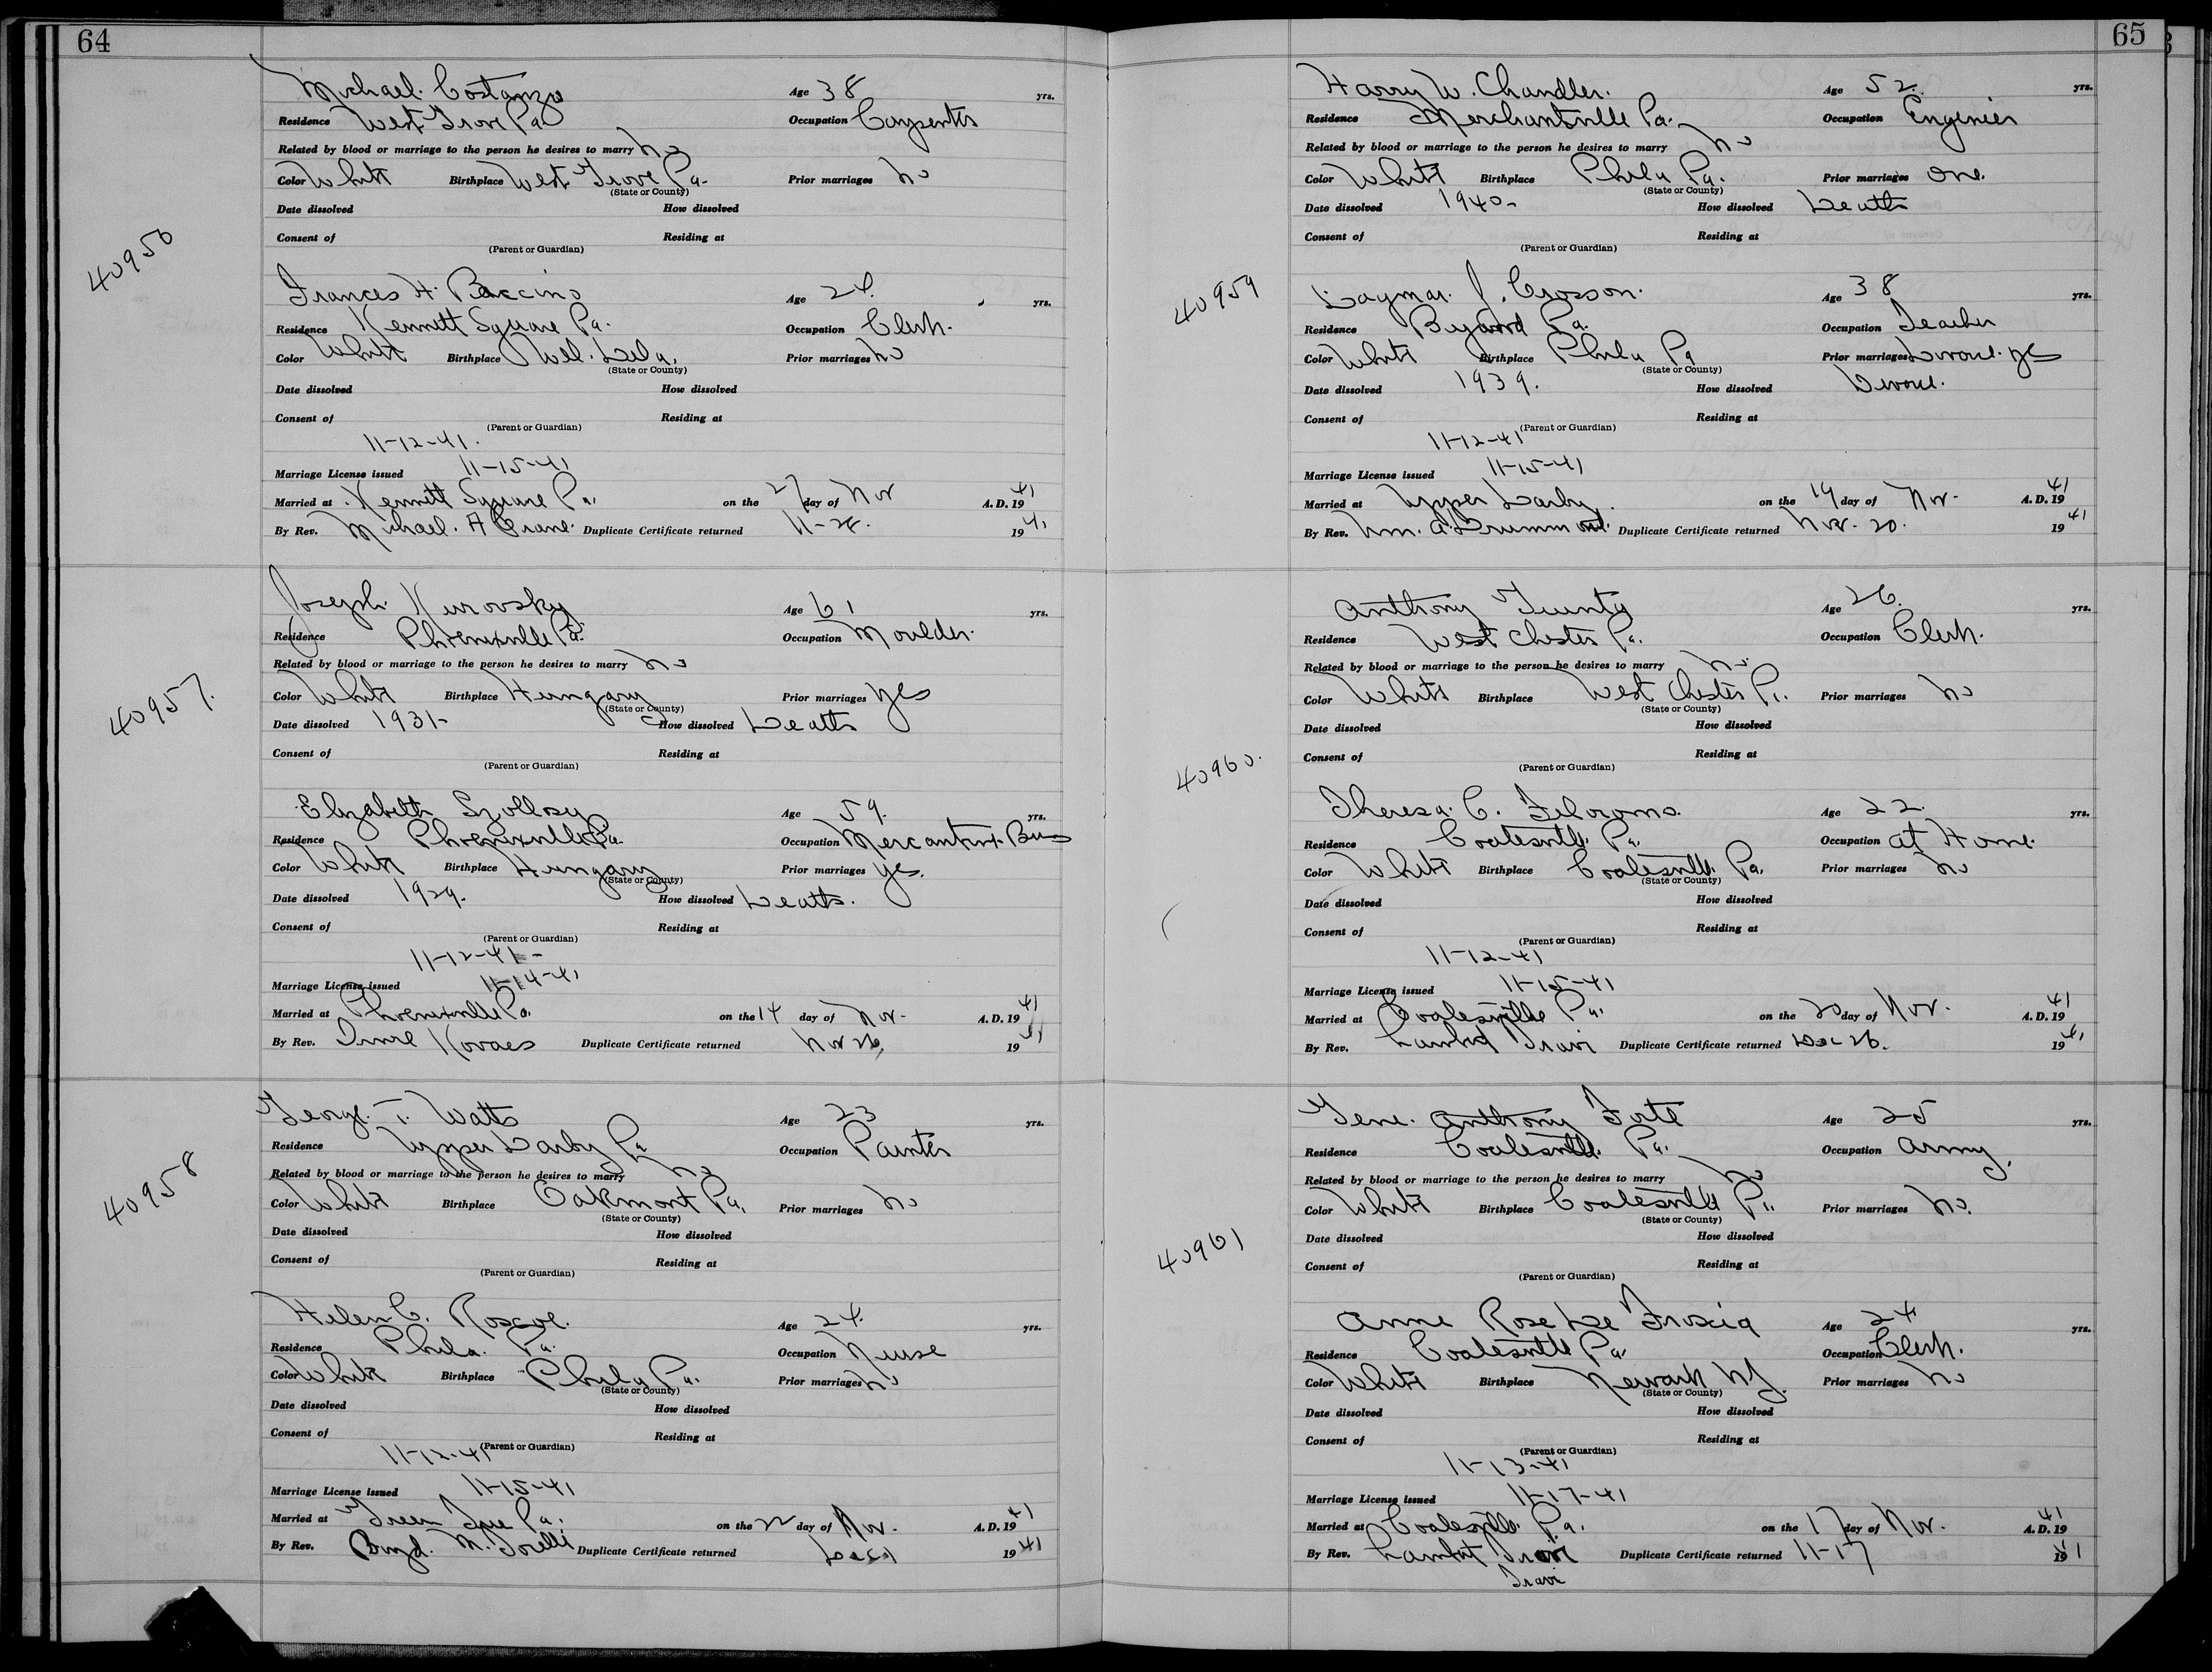 64
40956
Michael Costanzo Age 38 yrs.
Residence West Grove Pa Occupation Carpenter
Related by blood or marriage to the person he desires to marry No
Color White Birthplace West Grove Pa. Prior marriages No
(State or County)
Date dissolved How dissolved
Consent of Residing at
(Parent or Guardian)
Frances H. Baccino Age 24 yrs.
Residence Kennett Square Pa. Occupation Clerk.
Color White Birthplace Wil. Dela. Prior marriages No
(State or County)
Date dissolved How dissolved
Consent of Residing at
(Parent or Guardian)
11-12-41.
Marriage License issued 11-15-41
Married at Kennett Square Pa. on the 27 day of Nov A.D. 19 41
By Rev. Michael A Crane. Duplicate Certificate returned 11-28. 19 41
40957.
Joseph Kurovsky Age 61 yrs.
Residence Phoenixville Pa. Occupation Moulder.
Related by blood or marriage to the person he desires to marry No
Color White Birthplace Hungary Prior marriages yes
(State or County)
Date dissolved 1931- How dissolved Death
Consent of Residing at
(Parent or Guardian)
Elizabeth Szollosy Age 59. yrs.
Residence Phoenixville Pa. Occupation Bus
Color White Birthplace Hungary Prior marriages yes.
(State or County)
Date dissolved 1929. How dissolved Death.
Consent of Residing at
(Parent or Guardian)
11-12-41-
Marriage License issued 11-14-41
Married at Phoenixville Pa. on the 14 day of Nov. A.D. 19 41
By Rev. Imre Kovacs Duplicate Certificate returned Nov 26, 19 41
40958
George T. Watts Age 23 yrs.
Residence Upper Darby Pa Occupation Painter
Related by blood or marriage to the person he desires to marry No
Color White Birthplace Oakmont Pa. Prior marriages No
(State or County)
Date dissolved How dissolved
Consent of Residing at
(Parent or Guardian)
Helen C. Roscoe. Age 24. yrs.
Residence Phila. Pa. Occupation Nurse
Color White Birthplace Phila Pa. Prior marriages No
(State or County)
Date dissolved How dissolved
Consent of Residing at
(Parent or Guardian)
11-12-41
Marriage License issued 11-15-41
Married at Green Tree Pa. on the 22 day of Nov. A.D. 19 41
By Rev. Boyd. M. Duplicate Certificate returned Dec 1 19 41
65
40959
Harry W. Chandler. Age 52. yrs.
Residence Merchantville Pa. Occupation Engenier
Related by blood or marriage to the person he desires to marry No
Color White Birthplace Phila Pa. Prior marriages One.
(State or County)
Date dissolved 1940- How dissolved Death
Consent of Residing at
(Parent or Guardian)
Dagmar J. Crosson. Age 38 yrs.
Residence Pa. Occupation Teacher
Color White Birthplace Phila Pa Prior marriages Divorce. yes
(State or County)
Date dissolved 1939. How dissolved Divorce.
Consent of Residing at
(Parent or Guardian)
11-12-41
Marriage License issued 11-15-41
Married at Upper Darby. on the 19 day of Nov. A.D. 19 41
By Rev. Wm. A. Drummond. Duplicate Certificate returned Nov. 20. 19 41
40960.
Anthony Giunta Age 26. yrs.
Residence West Chester Pa. Occupation Clerk.
Related by blood or marriage to the person he desires to marry No.
Color White Birthplace West Chester Pa. Prior marriages No
(State or County)
Date dissolved How dissolved
Consent of Residing at
(Parent or Guardian)
Theresa C. Filoromo. Age 22. yrs.
Residence Coatesville. Pa. Occupation At Home.
Color White Birthplace Coatesville. Pa. Prior marriages No
(State or County)
Date dissolved How dissolved
Consent of Residing at
(Parent or Guardian)
11-12-41
Marriage License issued 11-15-41
Married at Coatesville Pa. on the 20 day of Nov. A.D. 19 41
By Rev. Lambert Travi Duplicate Certificate returned Dec 26. 19 41
40961
Gene. Anthony Forte Age 25 yrs.
Residence Coatesville. Pa. Occupation Army.
Related by blood or marriage to the person he desires to marry No
Color White Birthplace Coatesville Pa. Prior marriages No.
(State or County)
Date dissolved How dissolved
Consent of Residing at
(Parent or Guardian)
Anne Rose De Age 24 yrs.
Residence Coatesville Pa. Occupation Clerk.
Color White Birthplace Newark NJ. Prior marriages No
(State or County)
Date dissolved How dissolved
Consent of Residing at
(Parent or Guardian)
11-13-41
Marriage License issued 11-17-41
Married at Coatesville. Pa. on the 17 day of Nov. A.D. 19 41
By Rev. Lambert Travi Duplicate Certificate returned 11-17 19 41
Travi